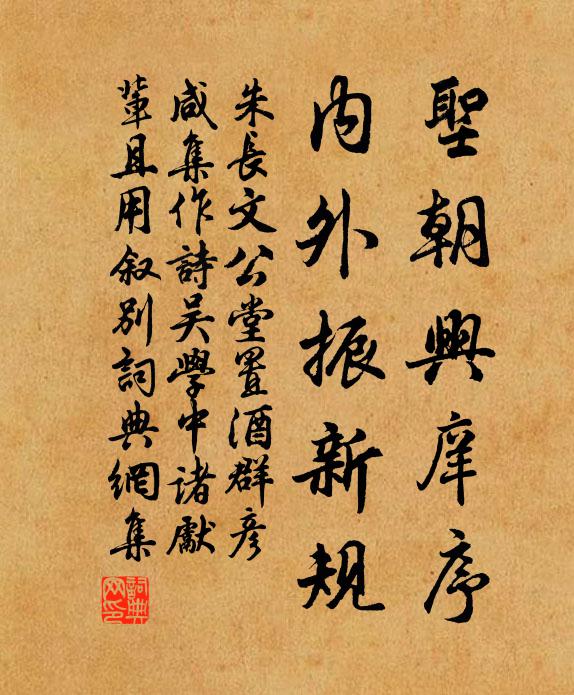 聖朝興庠序
内外振新規
朱長文公堂置酒群彦
咸集作詩吳學中諸獻
輩且用叙別詞典網集
詞典网印